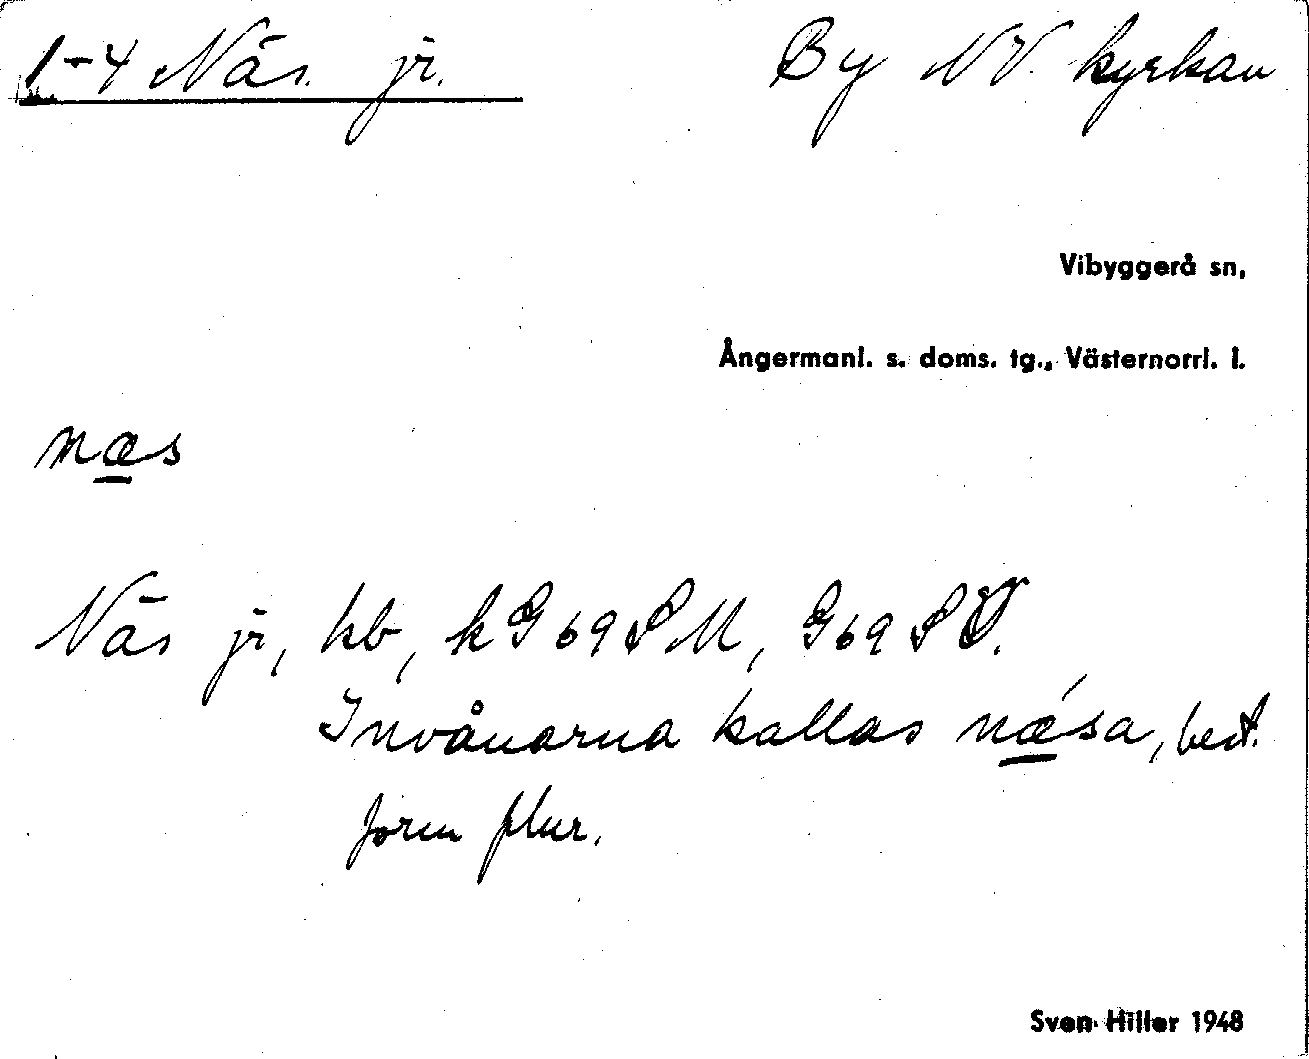 1-4 Näs. jr. By NV. kyrkan
Vibyggerå sn,
Ångermanl. s. doms. tg., Västernorrl. l.
næs
Näs jr, kb, k G 69 S M, G 69 S V.
Invånarna kallas nǽsa, best.
form plur.
Sven Hiller 1948